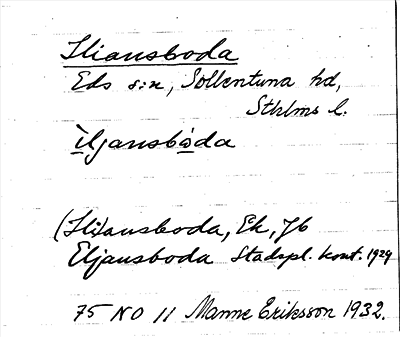 Iliansboda
Eds s:n, Sollentuna hd,
Sthlms l.
ìljansbòda
(Ili)ansboda, Ek, Jb
Eljansboda Stadspl. kont. 1929
75 NO 11 Manne Eriksson 1932.